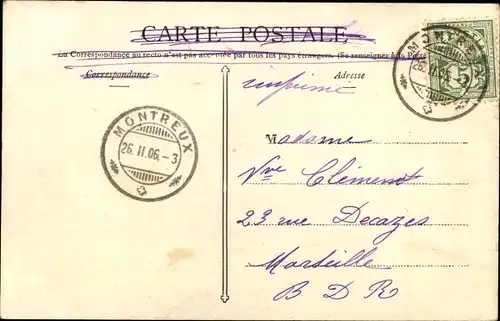 CARTE POSTALE
La Correspondance au recto n'est pas acceptée par tous les pays étrangers. (Se renseigner à la Poste
Correspondance
Adresse
imprimé
MONTREUX
26. II. 06. - 3
MONTREUX
5
Madame
Vve Clément
23 rue Decazes
Marseille
B D R